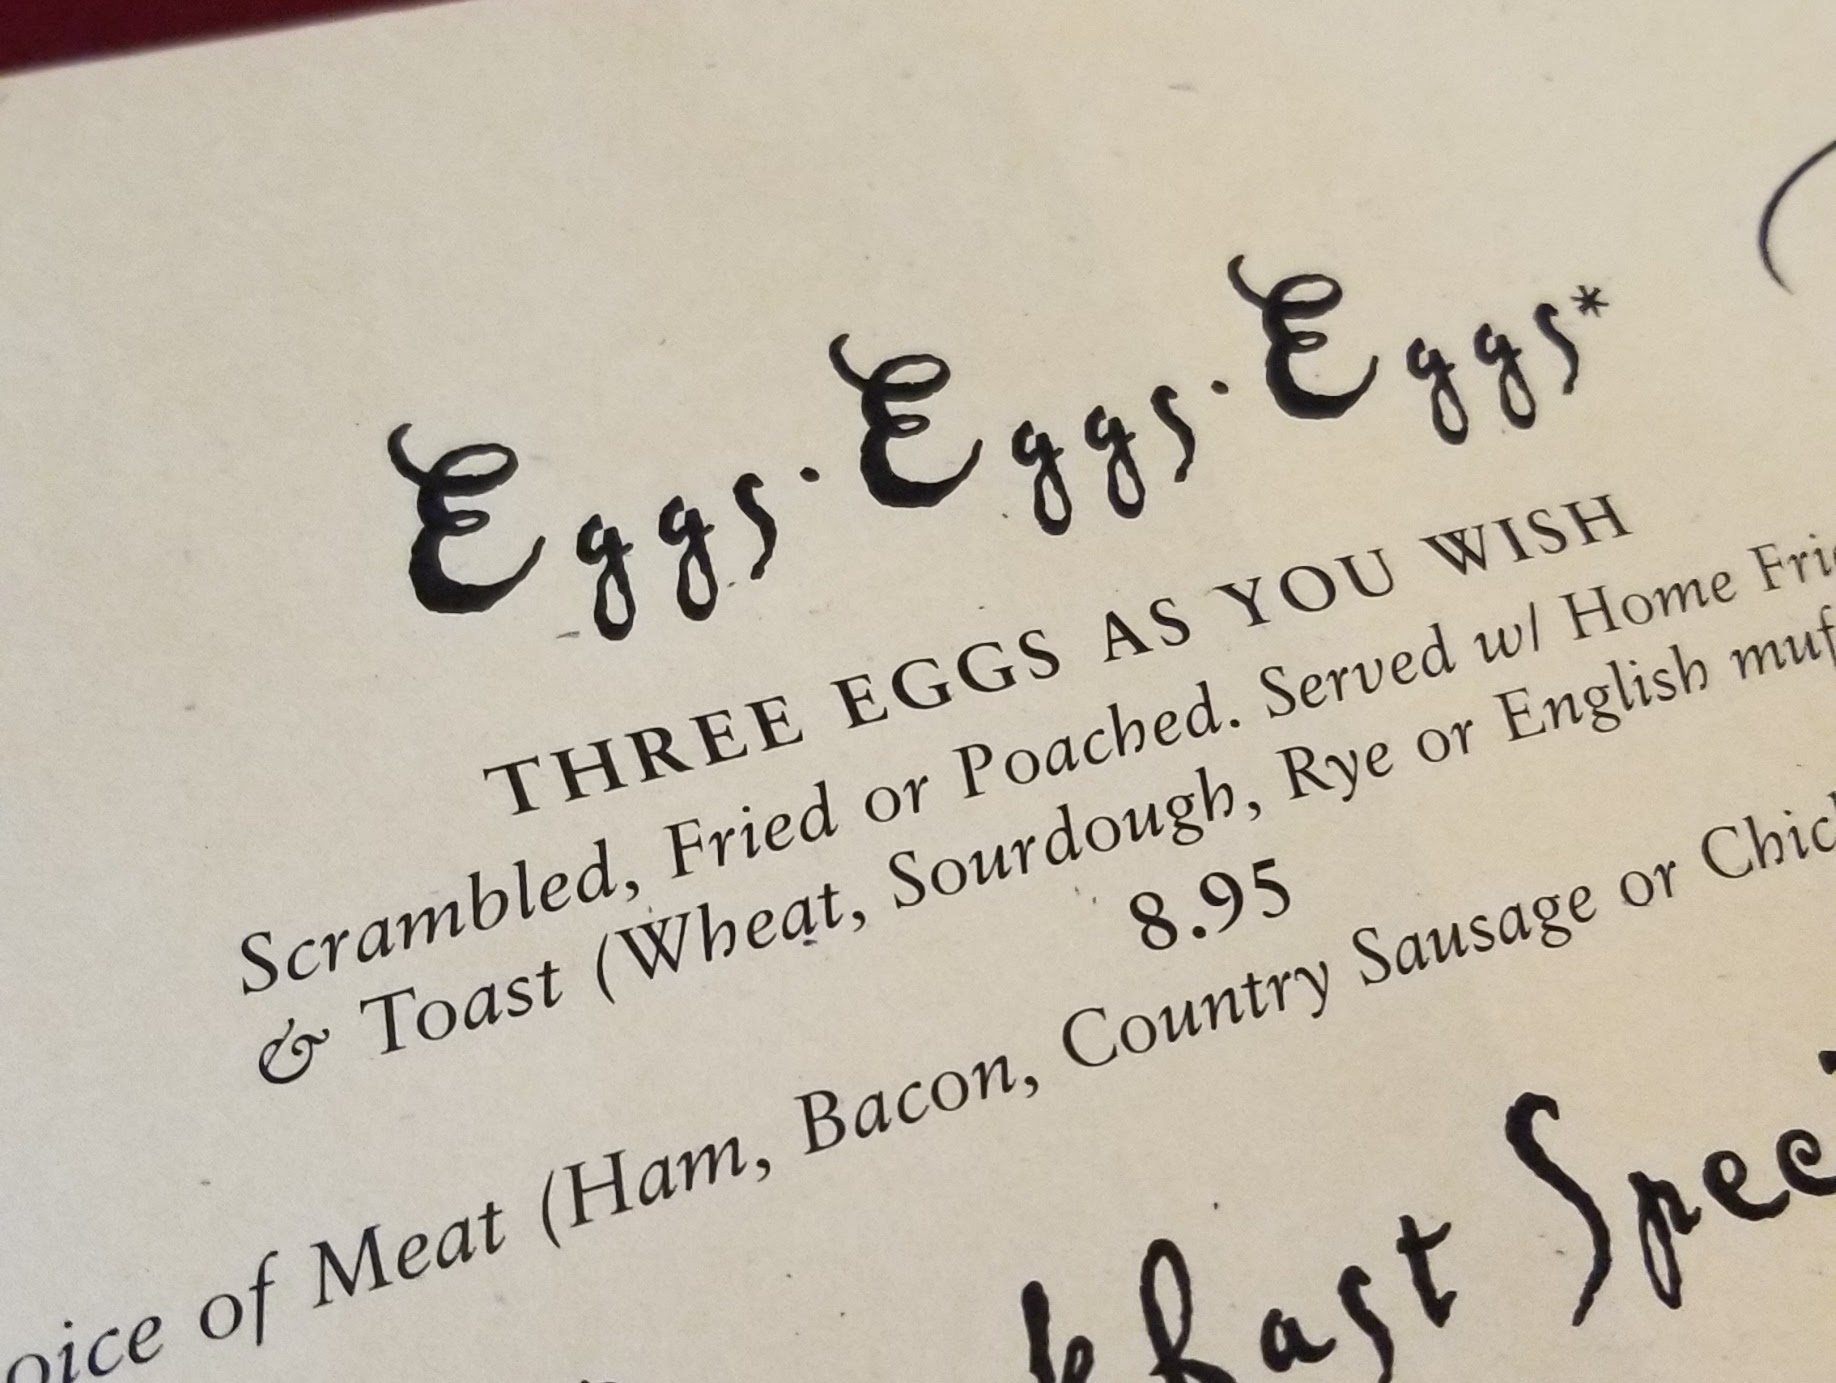 Eggs · Eggs · Eggs*
THREE EGGS AS YOU WISH
Scrambled, Fried or Poached. Served w/ Home
& Toast (Wheat, Sourdough, Rye or English
8.95
of Meat (Ham, Bacon, Country Sausage or